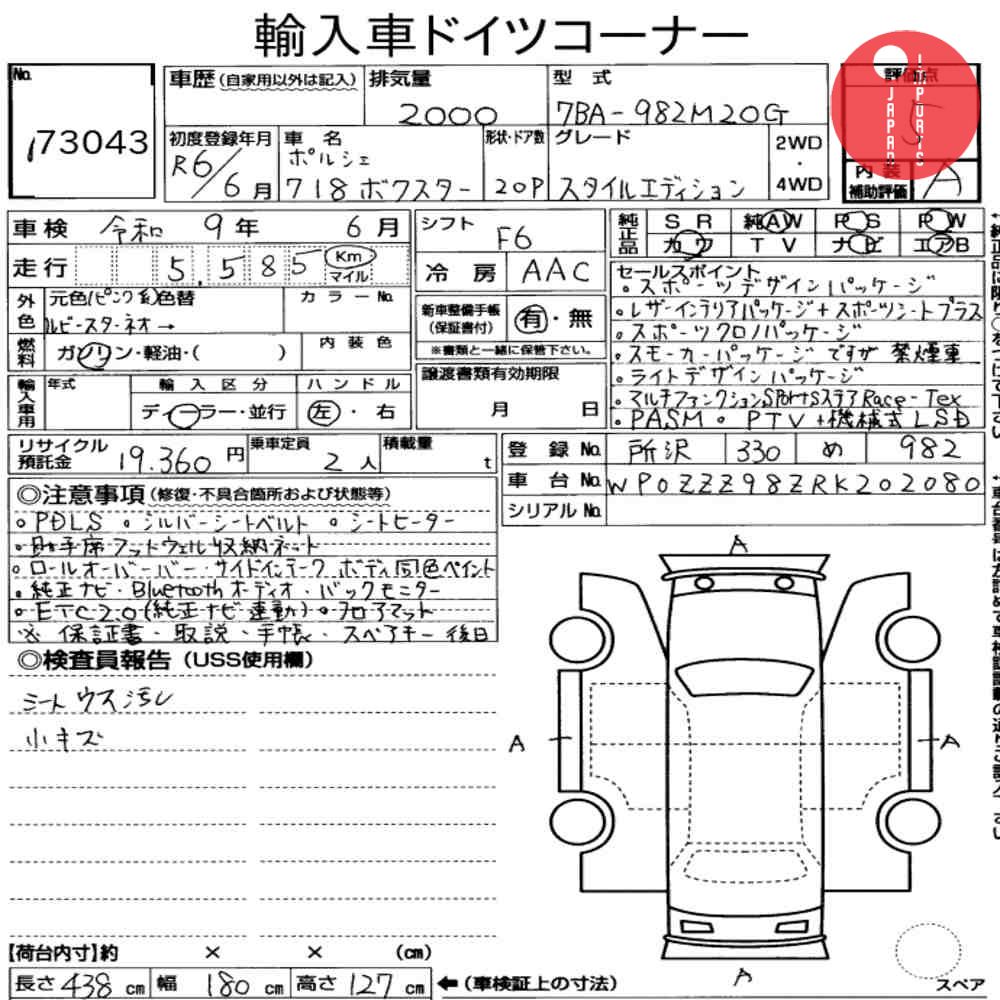 輸入車ドイツコーナー
No. 173043
車歴 (自家用以外は記入)
排気量 2000
型式 7BA-982M20G
評価点 5
JAPAN IMPORTS
初度登録年月 R6/6月
車名 ポルシェ 718ボクスター
形状・ドア数 20P
グレード スタイルエディション
2WD・4WD
内装補助評価 A
車検 令和 9年 6月
シフト F6
純正品 SR 純AW PS PW
カワ TV ナビ エアB
走行 5,585 Km マイル
冷房 AAC
外色 元色(ピンク系)色替 カラーNo.
ルビースターネオ→
新車整備手帳(保証書付) 有・無
※書類と一緒に保管下さい。
燃料 ガソリン・軽油・( ) 内装色
譲渡書類有効期限 月 日
輸入車用 年式 輸入区分 ハンドル
ディーラー・並行 左・右
セールスポイント
。スポーツデザインパッケージ
・レザーインテリアパッケージ+スポーツシートプラス
・スポーツクロノパッケージ
・スモーカーパッケージですが禁煙車
・ライトデザインパッケージ
・マルチファンクションSPortsステアRace-Tex
・PASM 。PTV+機械式LSD
リサイクル預託金 19.360円
乗車定員 2人
積載量 t
登録No. 所沢 330 め 982
車台No. WP0ZZZ98ZRK202080
シリアルNo.
◎注意事項 (修復・不具合箇所および状態等)
。PDLS 。シルバーシートベルト 。シートヒーター
・助手席フットウェル収納ネット
。ロールオーバーバー・サイドインテーク ボディ同色ペイント
・純正ナビ・Bluetoothオーディオ・バックモニター
・ETC2.0(純正ナビ連動)。フロアマット
※ 保証書・取説・手帳・スペアキー後日
◎検査員報告 (USS使用欄)
シートウス汚レ
小キズ
A
A
A
A
【荷台内寸】約 × × (cm)
長さ438cm 幅180cm 高さ127cm
←(車検証上の寸法)
スペア